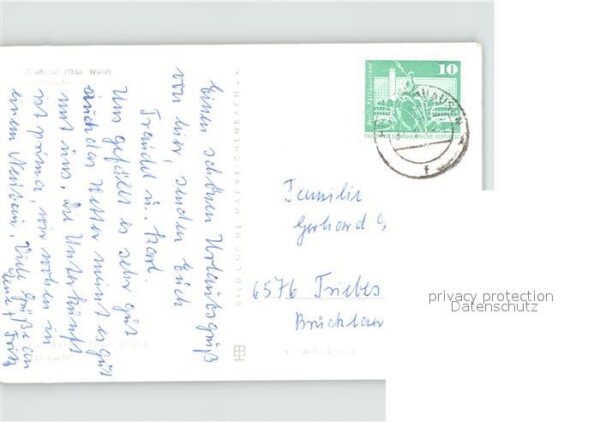 (Thür. Wald)
Einen schönen Urlaubsgruß
von hier, senden Euch
Traudel u. Karl.
Uns gefällt es sehr gut
auch das Wetter meint es gut
mit uns, die Unterkunft
ist prima, wir wohnen in
einem Neubau. Viele Grüße an
u. Fritz
BILD UND HEIMAT REICHENBACH I. V.
10
Familie
Gerhard G
6576 Triebes
privacy protection
Datenschutz